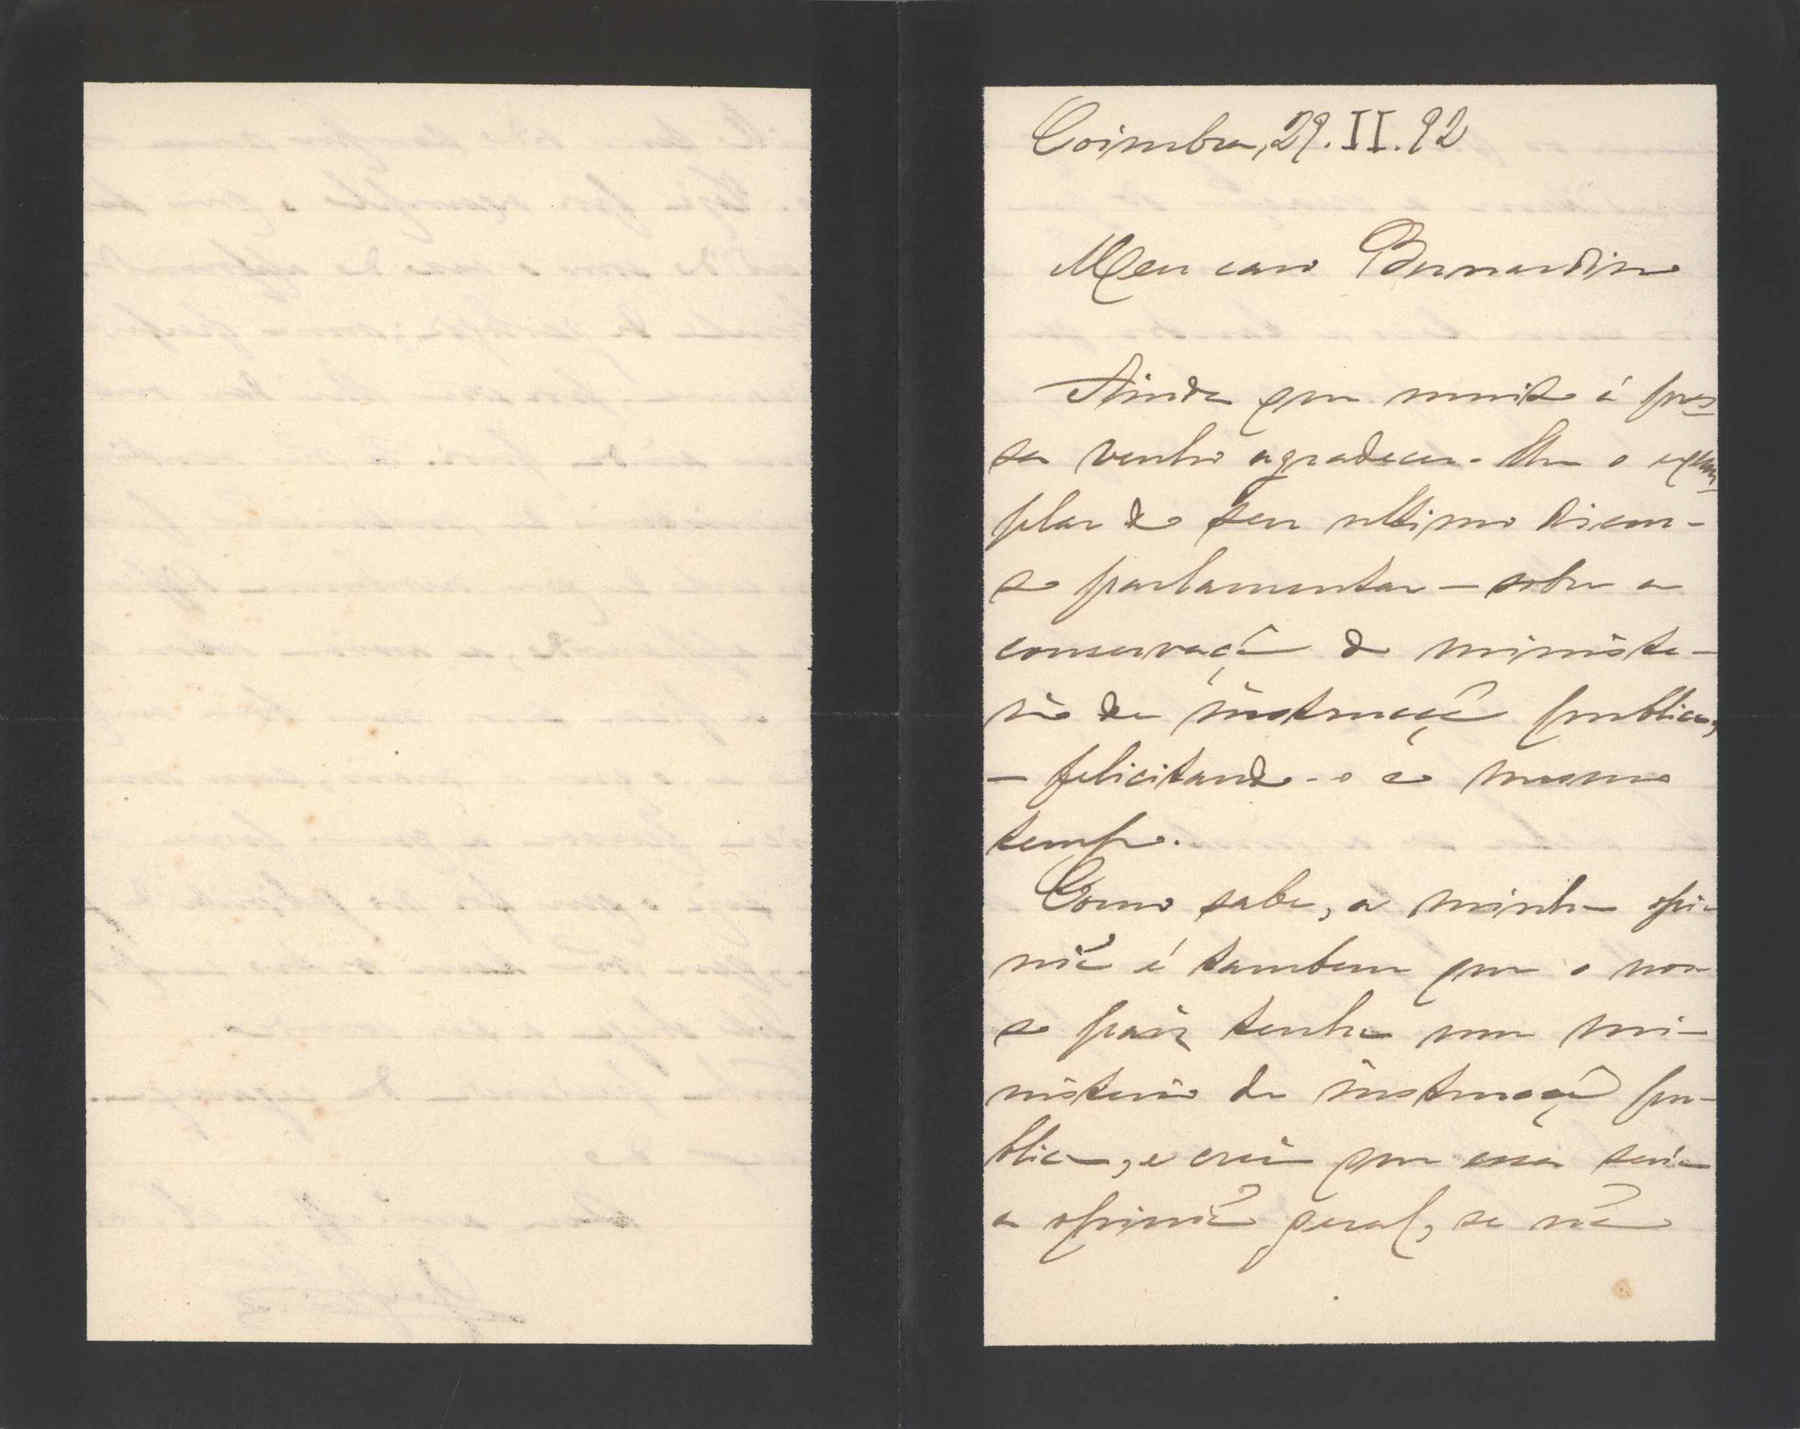 Coimbra, 29.II.92
Meu caro Bernardino
Ainda que muito á pres-
sa venho agradecer-lhe o exem-
plar do seu ultimo discur-
so parlamentar — sobre a
conservação do ministe-
rio da instrucção publica,
— felicitando-o ao mesmo
tempo.
Como sabe, a minha opi-
nião é tambem que o nos-
so paiz tenha um mi-
nisterio da instrucção pu-
blica, e creio que essa seria
a opinião geral, se não